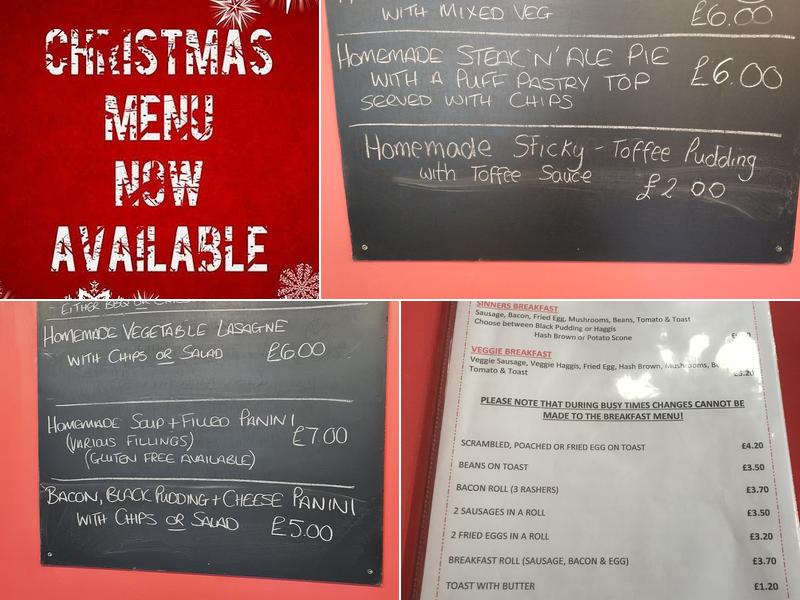 CHRISTMAS
MENU
NOW
AVAILABLE
WITH MIXED VEG £6.00
HOMEMADE STEAK 'N' ALE PIE
WITH A PUFF PASTRY TOP £6.00
SERVED WITH CHIPS
Homemade Sticky-Toffee Pudding
with Toffee Sauce £2.00
- EITHER BBQ OR
HOMEMADE VEGETABLE LASAGNE
WITH CHIPS OR SALAD £6.00
HOMEMADE SOUP + FILLED PANINI
(VARIOUS FILLINGS) £7.00
(GLUTEN FREE AVAILABLE)
BACON, BLACK PUDDING + CHEESE PANINI
WITH CHIPS OR SALAD £5.00
SINNERS BREAKFAST
Sausage, Bacon, Fried Egg, Mushrooms, Beans, Tomato & Toast
Choose between Black Pudding or Haggis
Hash Brown or Potato Scone
VEGGIE BREAKFAST
Veggie Sausage, Veggie Haggis, Fried Egg, Hash Brown, Mushrooms,
Tomato & Toast
PLEASE NOTE THAT DURING BUSY TIMES CHANGES CANNOT BE
MADE TO THE BREAKFAST MENU!
SCRAMBLED, POACHED OR FRIED EGG ON TOAST £4.20
BEANS ON TOAST £3.50
BACON ROLL (3 RASHERS) £3.70
2 SAUSAGES IN A ROLL £3.50
2 FRIED EGGS IN A ROLL £3.20
BREAKFAST ROLL (SAUSAGE, BACON & EGG) £3.70
TOAST WITH BUTTER £1.20